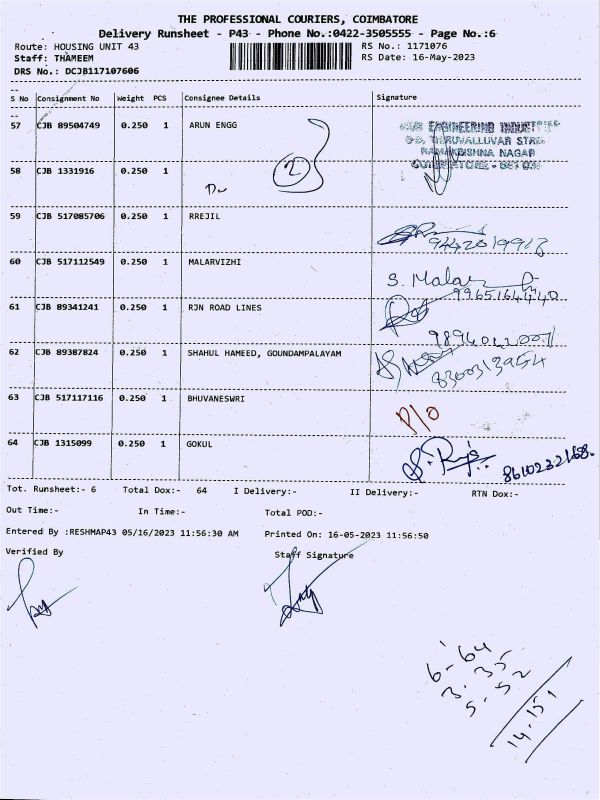 THE PROFESSIONAL COURIERS, COIMBATORE
Delivery Runsheet - P43 - Phone No.:0422-3505555 - Page No.:6
Route: HOUSING UNIT 43 RS No.: 1171076
Staff: THAMEEM RS Date: 16-May-2023
DRS No.: DCJB117107606
S No Consignment No Weight PCS Consignee Details Signature
57 CJB 89504749 0.250 1 ARUN ENGG
ENGINEERING INDUSTRIES
THIRUVALLUVAR STREET
RAMAKRISHNA NAGAR
58 CJB 1331916 0.250 1 2
59 CJB 517085706 0.250 1 RREJIL
9442019918
60 CJB 517112549 0.250 1 MALARVIZHI S. Malar
61 CJB 89341241 0.250 1 RJN ROAD LINES
62 CJB 89387824 0.250 1 SHAHUL HAMEED, GOUNDAMPALAYAM
8300313954
63 CJB 517117116 0.250 1 BHUVANESWRI P/O
64 CJB 1315099 0.250 1 GOKUL
8610232168
Tot. Runsheet:- 6 Total Dox:- 64 I Delivery:- II Delivery:- RTN Dox:-
Out Time:- In Time:- Total POD:-
Entered By :RESHMAP43 05/16/2023 11:56:30 AM Printed On: 16-05-2023 11:56:50
Verified By Staff Signature
6-64
3.35
5.52
14.151